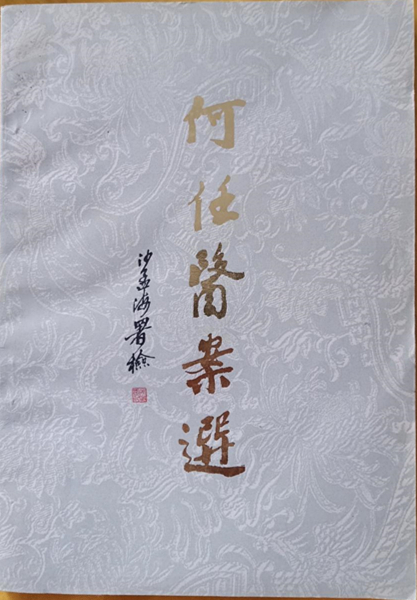 何任醫案選
沙孟海署檢